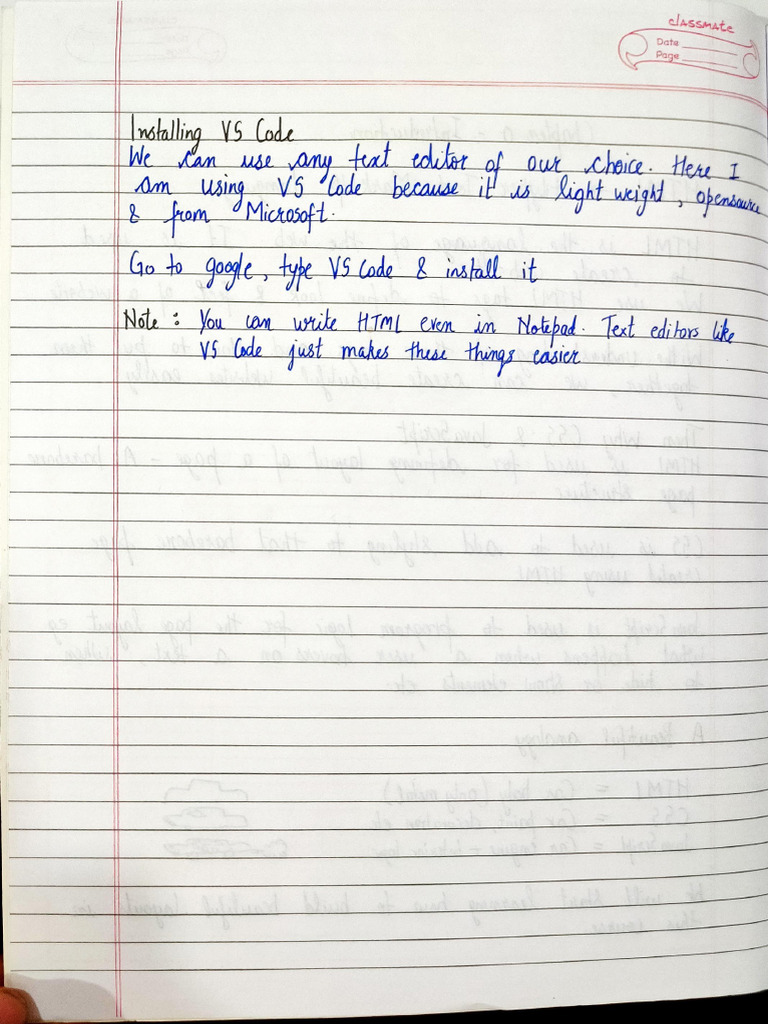 classmate
Date
Page
Installing VS Code
We can use any text editor of our choice. Here I
am using VS Code because it is light weight, opensource
& from Microsoft.
Go to google, type VS Code & install it
Note : You can write HTML even in Notepad. Text editors like
VS Code just makes these things easier